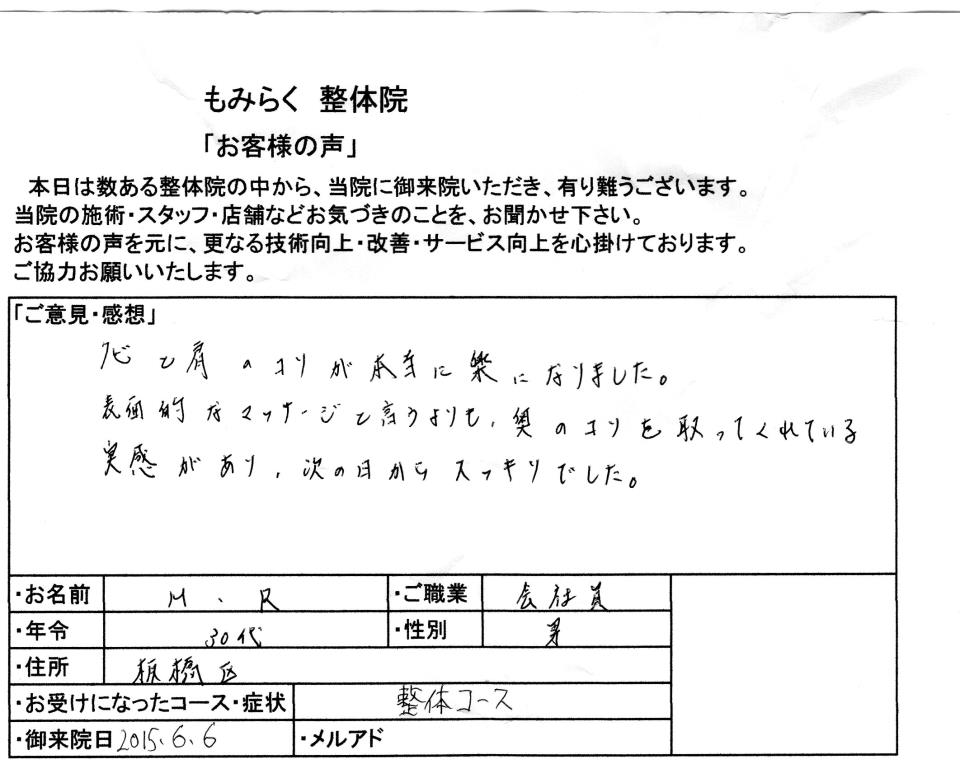 もみらく 整体院
「お客様の声」
本日は数ある整体院の中から、当院に御来院いただき、有り難うございます。
当院の施術・スタッフ・店舗などお気づきのことを、お聞かせ下さい。
お客様の声を元に、更なる技術向上・改善・サービス向上を心掛けております。
ご協力お願いいたします。
「ご意見・感想」
クビと肩のコリが本当に楽になりました。
表面的なマッサージと言うよりも、奥のコリを取ってくれている
実感があり、次の日からスッキリでした。
・お名前 M、R ・ご職業 会社員
・年令 30代 ・性別 男
・住所 板橋区
・お受けになったコース・症状 整体コース
・御来院日 2015.6.6 ・メルアド